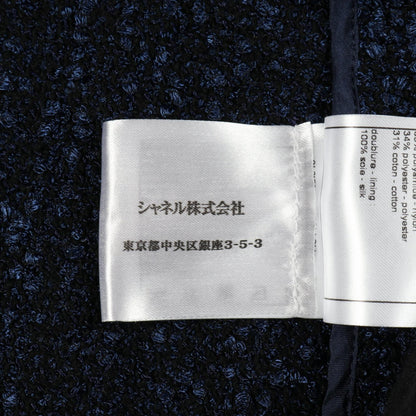 シャネル株式会社
東京都中央区銀座3-5-3
34% polyester - polyester
31% coton - cotton
doublure - lining
100% soie - silk